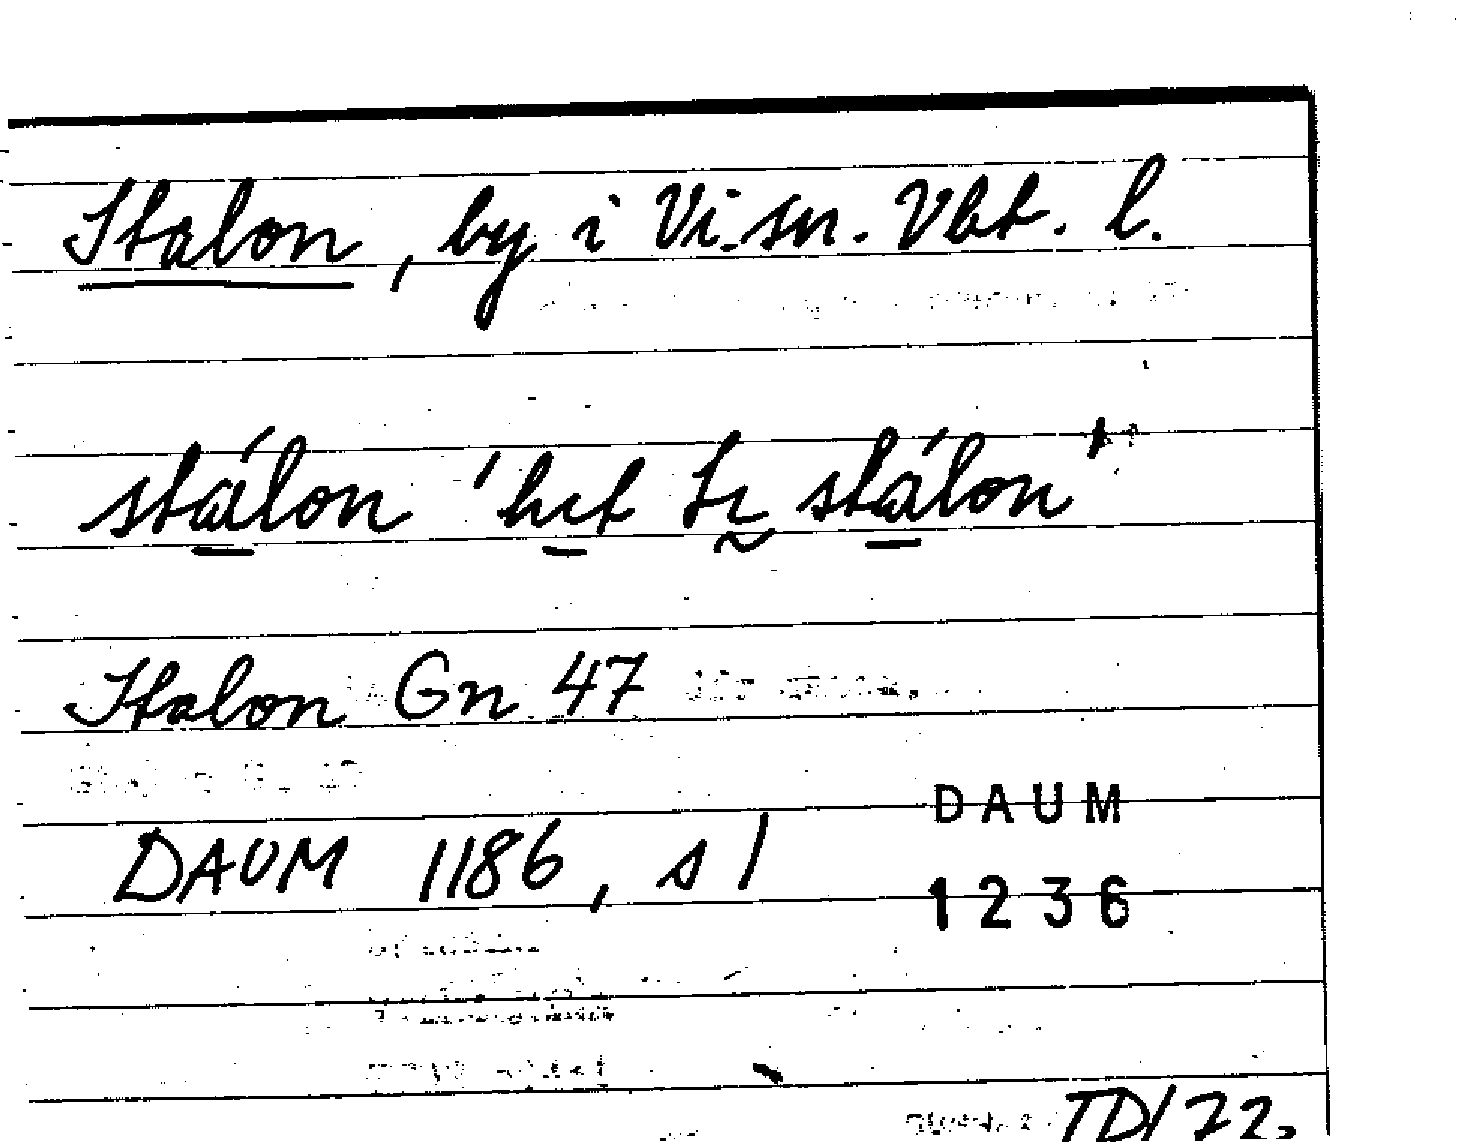 Stalon, by i Vi. sn. Vbt. l.
stálon 'hit ti stálon'
Stalon Gn 47
DAUM 1186, s 1
DAUM
1236
TD/72.